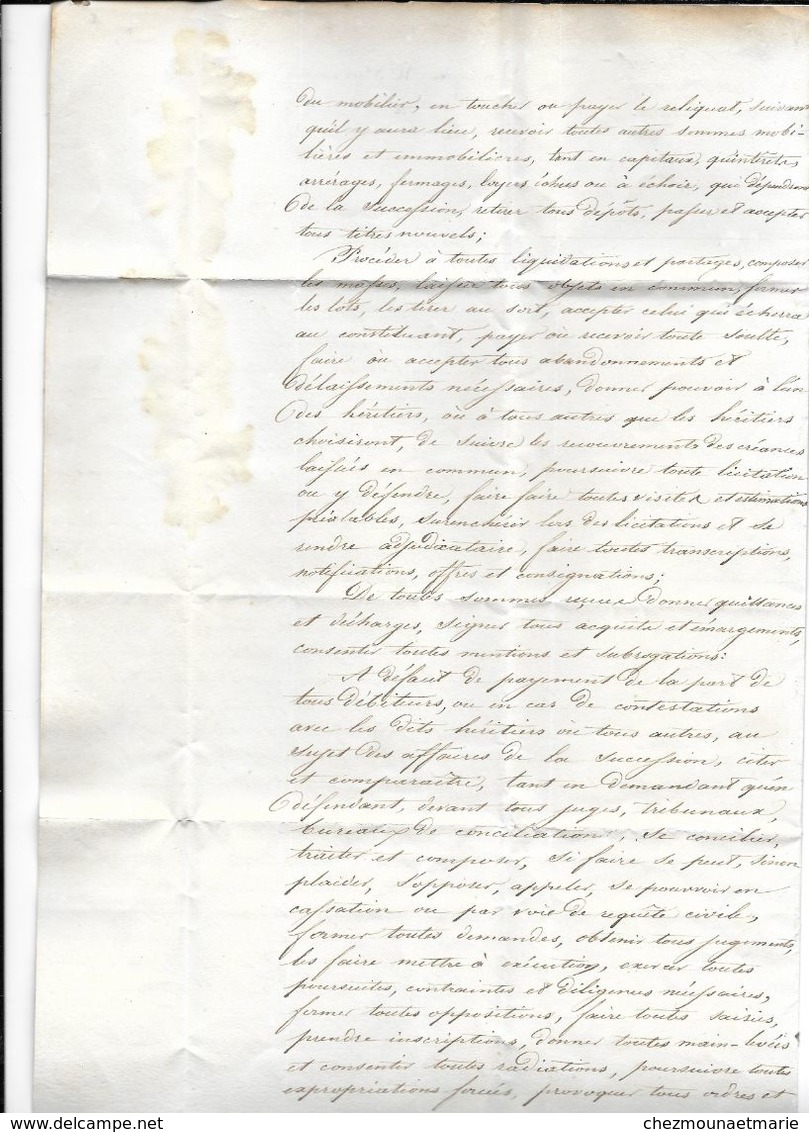 du mobilier, en toucher ou payer le reliquat, suivant
qu'il y aura lieu, recevoir toutes autres sommes mobi-
lières et immobilières, tant en capitaux, qu'intérêts,
arrérages, fermages, loyers échus ou à échoir, qui dépendront
de la succession, retirer tous dépôts, passer et accepter
tous titres nouvels;
Procéder à toutes liquidations et partages, composer
les masses, laisser tous objets en commun, former
les lots, les tirer au sort, accepter celui qui écherra
au constituant, payer ou recevoir toute soulte,
faire ou accepter tous abandonnements et
délaissements nécessaires, donner pouvoir à l'un
des héritiers, ou à tous autres que les héritiers
choisiront, de suivre les recouvrements des créances
laissées en commun, poursuivre toute licitation
ou y défendre, faire faire toutes visites et estimations
préalables, surenchérir lors des licitations et se
rendre adjudicataire, faire toutes transcriptions,
notifications, offres et consignations;
De toutes sommes reçues donner quittances
et décharges, signer tous acquits et émargements,
consentir toutes mentions et subrogations:
A défaut de payement de la part de
tous débiteurs, ou en cas de contestations
avec les dits héritiers ou tous autres, au
sujet des affaires de la succession, citer
et comparaître, tant en demandant qu'en
défendant, devant tous juges, tribunaux,
bureaux de conciliation, se concilier,
traiter et composer, si faire se peut, sinon
plaider, s'opposer, appeler, se pourvoir en
cassation ou par voie de requête civile,
former toutes demandes, obtenir tous jugements,
les faire mettre à exécution, exercer toutes
poursuites, contraintes et diligences nécessaires,
former toutes oppositions, faire toutes saisies,
prendre inscriptions, donner toutes main-levées
et consentir toutes radiations, poursuivre toutes
expropriations forcées, provoquer tous ordres et
chezmounaetmarie